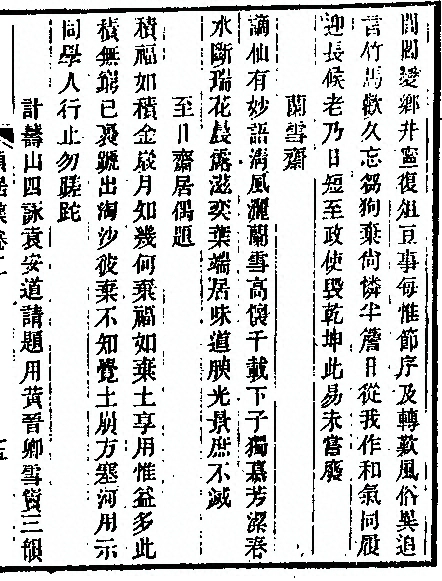 閭閻變鄉井寧復俎豆事每惟節序及轉歎風俗異追
言竹馬歡久忘芻狗棄尚憐半簷日從我作和氣同履
迎長候老乃日短至政使毀乾坤此易未嘗廢
蘭雪齋
謫仙有妙語清風灑蘭雪高懷千載下子獨慕芳潔春
水斷瑞花晨露滋奕葉端居味道腴光景庶不滅
至日齋居偶題
積福如積金歲月知幾何棄福如棄土享用惟益多此
積無窮已裘蹏出淘沙彼棄不知覺土崩方塞河用示
同學人行止勿蹉跎
計籌山四詠袁安道請題用黃晉卿雪竇三韻